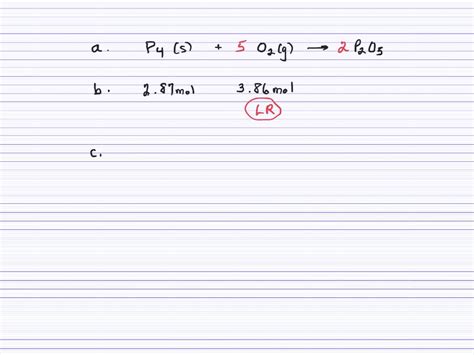 a. P4 (s) + 5 O2 (g) → 2 P2O5
b. 2.87mol 3.86mol
LR
c.